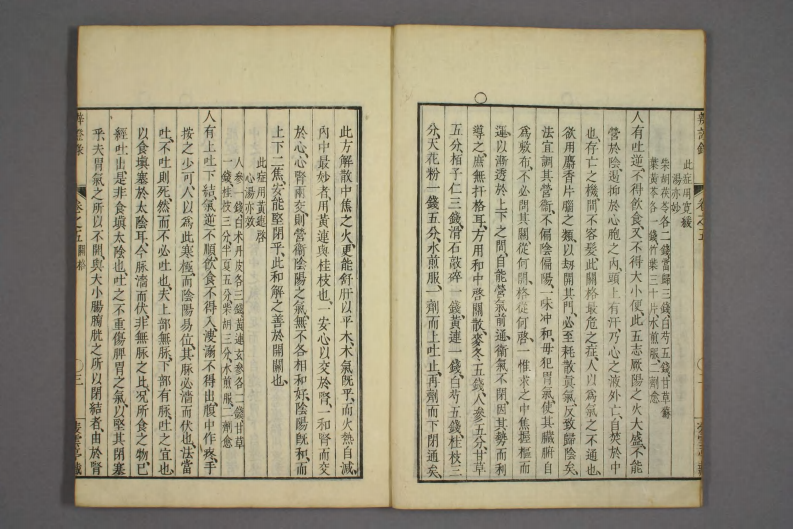 此症用寬緩
湯亦妙
柴胡茯苓各二錢當歸三錢白芍五錢甘草蘇
葉黃芩各一錢竹葉三十片水煎服二劑愈
人有吐逆不得飲食又不得大小便此五志厥陽之火大盛不能
營於陰遏抑於心胞之內頭上有汗乃心之液外亡自焚於中
也存亡之機間不容髮此關格最危之症人以爲氣之不通也
欲用麝香片腦之類以刼開其門必至耗散眞氣反致歸陰矣
法宜調其營衛不偏陰偏陽一味冲和毋犯胃氣使其臟腑自
爲敷布不必問其關從何開格從何啓一惟求之中焦握樞而
運以漸透於上下之間自能營氣前通衛氣不閉因其勢而利
導之庶無扞格耳方用和中啓關散麥冬五錢人參五分甘草
五分栢子仁三錢滑石敲碎一錢黃連一錢白芍五錢桂枝三
分天花粉一錢五分水煎服一劑而上吐止再劑而下閉通矣
此方解散中焦之火更能舒肝以平木木氣旣平而火熱自減
內中最妙者用黃連與桂枝也一安心以交於腎一和腎而交
於心心腎兩交則營衛陰陽之氣無不各相和好陰陽旣和而
上下二焦安能堅閉乎此和解之善於開關也
此症用黃蘗啓
心湯亦效
人參一錢白朮丹皮各三錢黃連玄參各二錢甘草
一錢桂枝三分半夏五分柴胡三分水煎服二劑愈
人有上吐下結氣逆不順飲食不得入溲溺不得出腹中作疼手
按之少可人以爲此寒極而陰陽易位其脈必濇而伏也法當
吐不吐則死然而不必吐也夫上部無脈下部有脈吐之宜也
以食塡塞於太陰耳今脈濇而伏非無脈之比况所食之物已
經吐出是非食塡太陰也吐之不重傷脾胃之氣以堅其閉塞
乎夫胃氣之所以不開與大小腸膀胱之所以閉結者由於腎
辨證錄
卷之五關格
三